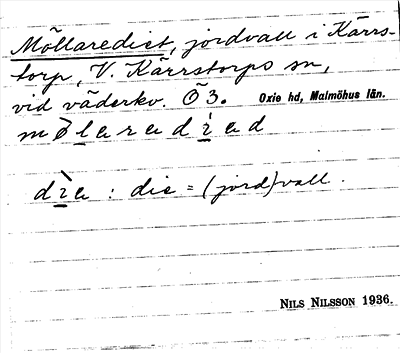 Möllarediet, jordvall i Kärrs-
torp, V. Kärrstorps sn,
vid väderkv. Ö 3. Oxie hd, Malmöhus län.
die = (jord)vall.
NILS NILSSON 1936.